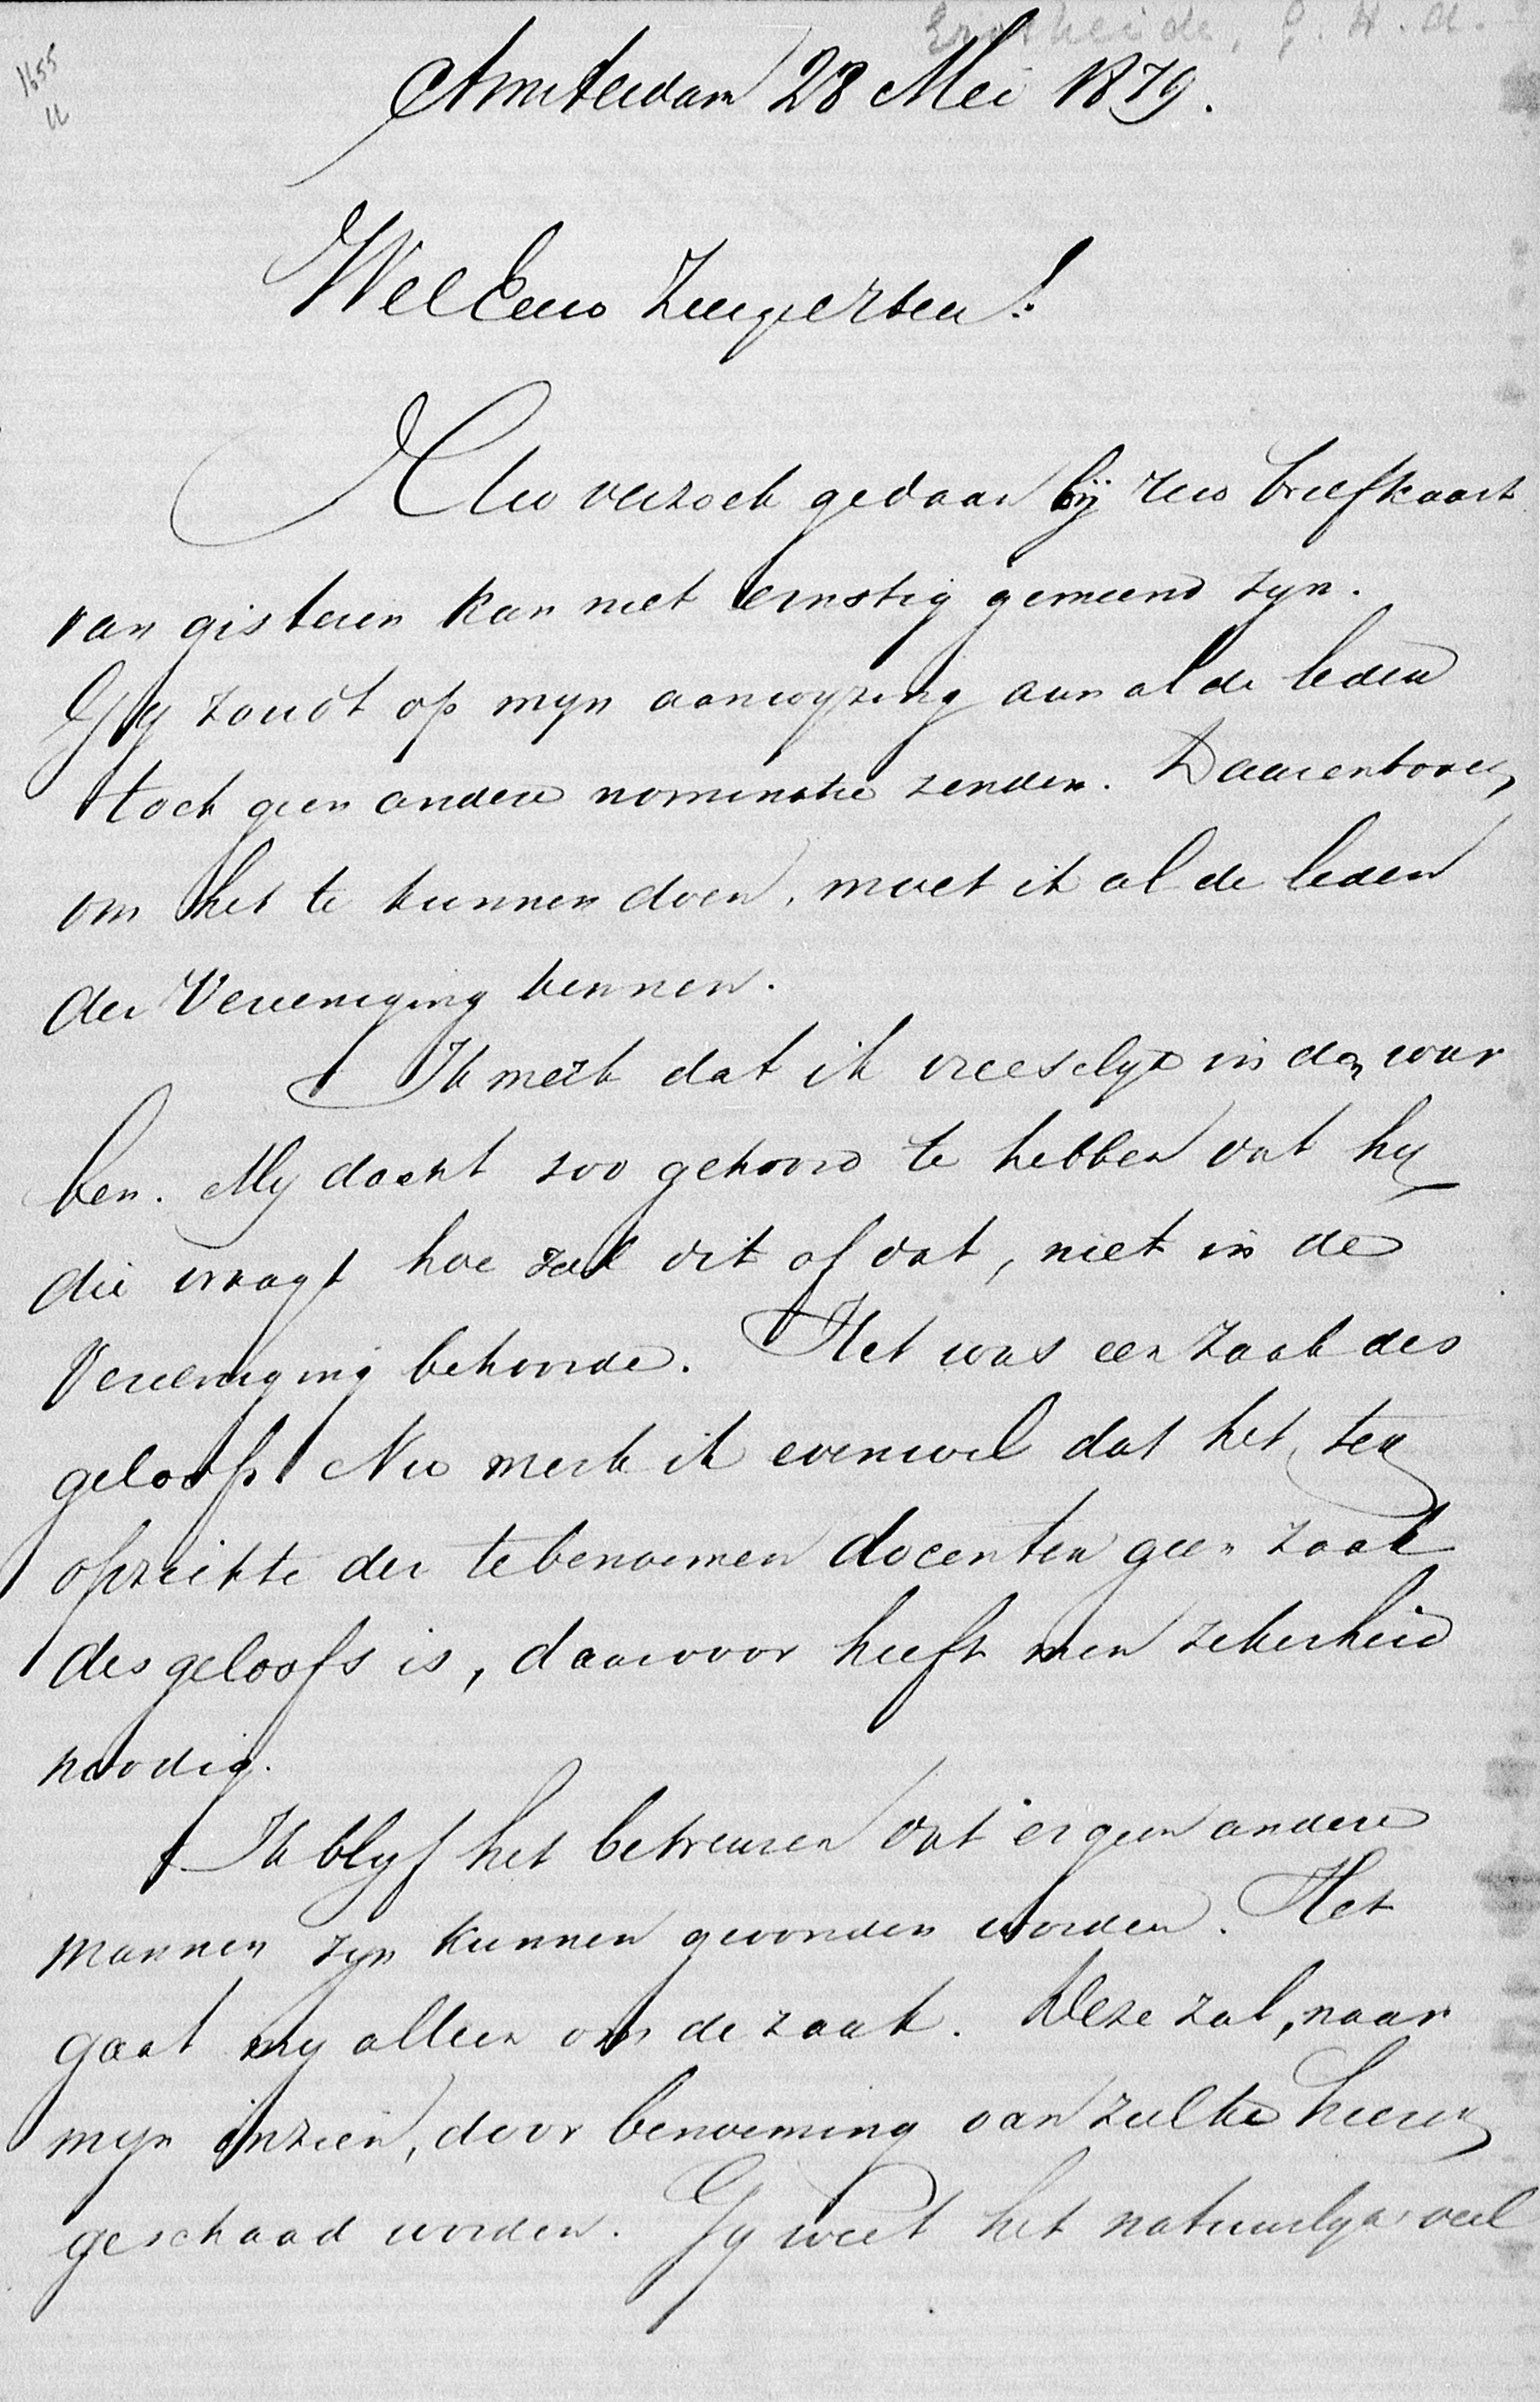 1655
Amsterdam 28 Mei 1879.
WelEerw Zeergeleerden!
Uw verzoek gedaan bij uw briefkaart
van gisteren kan niet ernstig gemeend zyn.
Gy zoudt op myn aanwyzing aan al de leden
toch geen andere nominatie zenden. Daarenboven,
om het te kunnen doen, moet ik al de leden
der Vereeniging kennen.
Ik merk dat ik vreeselyk in de war
ben. My dacht zoo gehoord te hebben dat hy
die vraagt hoe zal dit of dat, niet in de
Vereeniging behoorde. Het was een zaak des
geloofs. Nu merk ik evenwel dat het ten
opzichte der te benoemen docenten geen zaak
des geloofs is, daarvoor heeft men zekerheid
noodig.
Ik blyf het betreuren dat er geen andere
mannen zyn kunnen gevonden worden. Het
gaat my alleen om de zaak. Deze zal, naar
myn inzien, door benoeming van zulke heeren
geschaad worden. Gy weet het natuurlyk veel